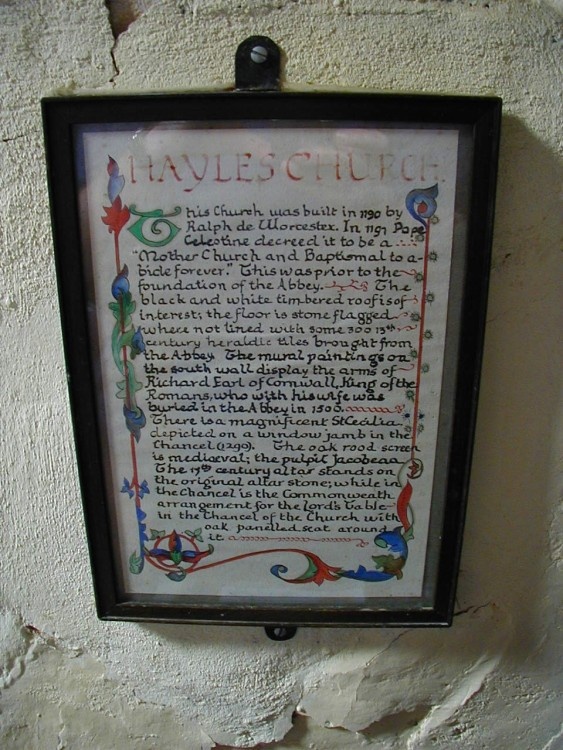 HAYLES CHURCH.
This Church was built in 1190 by
Ralph de Worcester. In 1191 Pope
Celestine decreed it to be a
"Mother Church and Baptismal to a-
bide forever." This was prior to the
foundation of the Abbey. The
black and white timbered roof is of
interest; the floor is stone flagged
where not lined with some 300 13th
century heraldic tiles brought from
the Abbey. The mural paintings on
the south wall display the arms of
Richard Earl of Cornwall, King of the
Romans, who with his wife was
buried in the Abbey in 1300.
There is a magnificent St Cecilia
depicted on a window jamb in the
Chancel (1290). The oak rood screen
is mediæval; the pulpit Jacobean.
The 17th century altar stands on
the original altar stone; while in
the Chancel is the Commonweath
arrangement for the Lord's Table-
in the Chancel of the Church with
oak panelled seat around
it